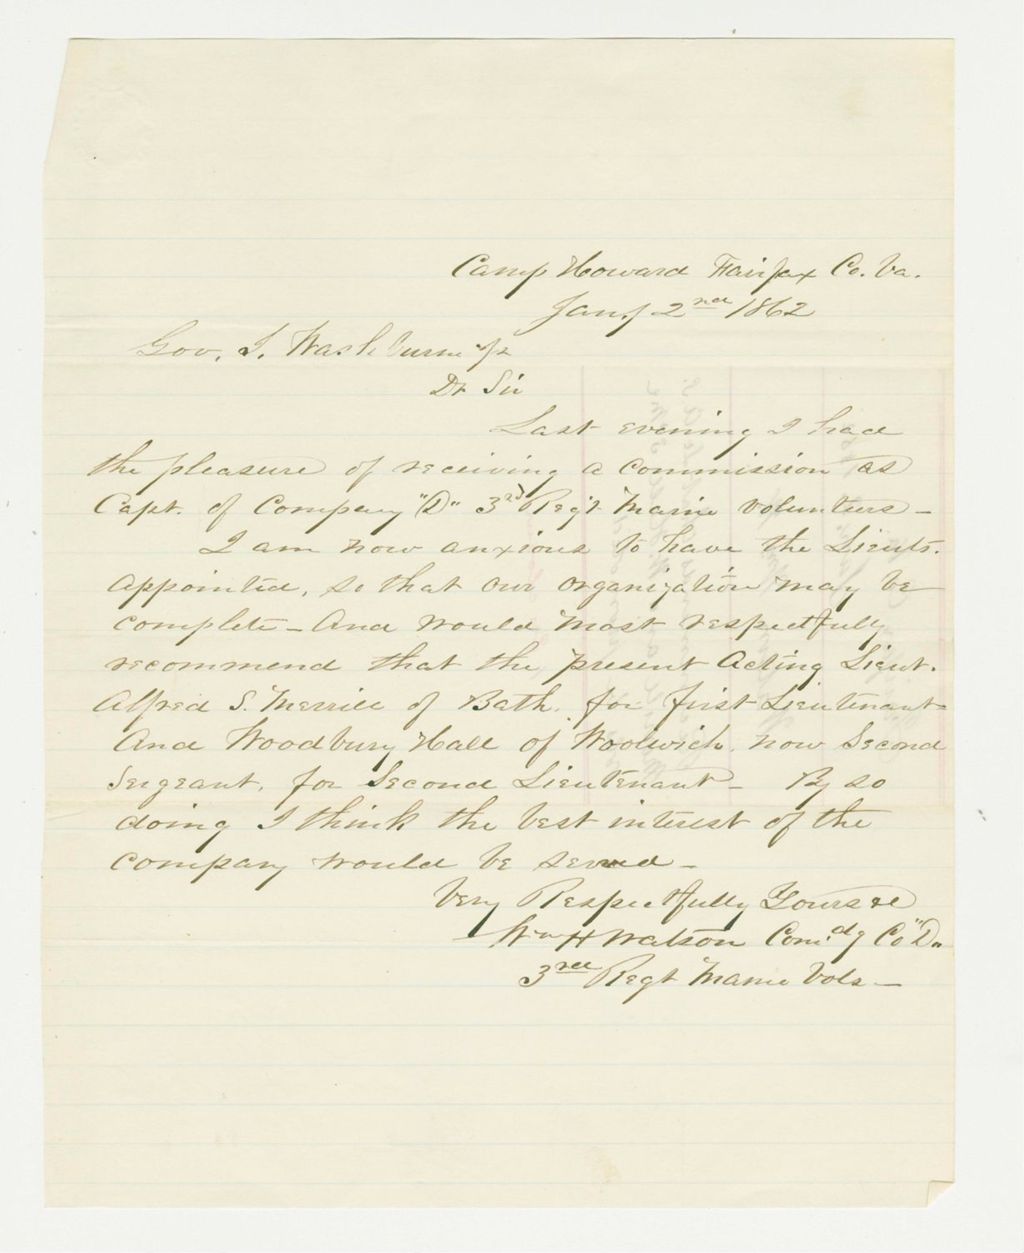 Camp Howard Fairfax Co. Va.
Jany 2nd 1862
Gov. I. Washburn Jr
Dr Sir
Last evening I had
the pleasure of receiving a commission as
Capt. of Company "D" 3rd Regt Maine volunteers -
I am now anxious to have the Lieuts.
appointed, so that our organization may be
complete - And would most respectfully
recommend that the present Acting Lieut.
Alfred S. Merrill of Bath, for first Lieutenant
And Woodbury Hall of Woolwich, now Second
Sergeant, for Second Lieutenant - By so
doing I think the best interest of the
company would be served -
Very Respectfully Yours &c
Wm H Watson Com.dg Co "D"
3rd Regt Maine Vols -